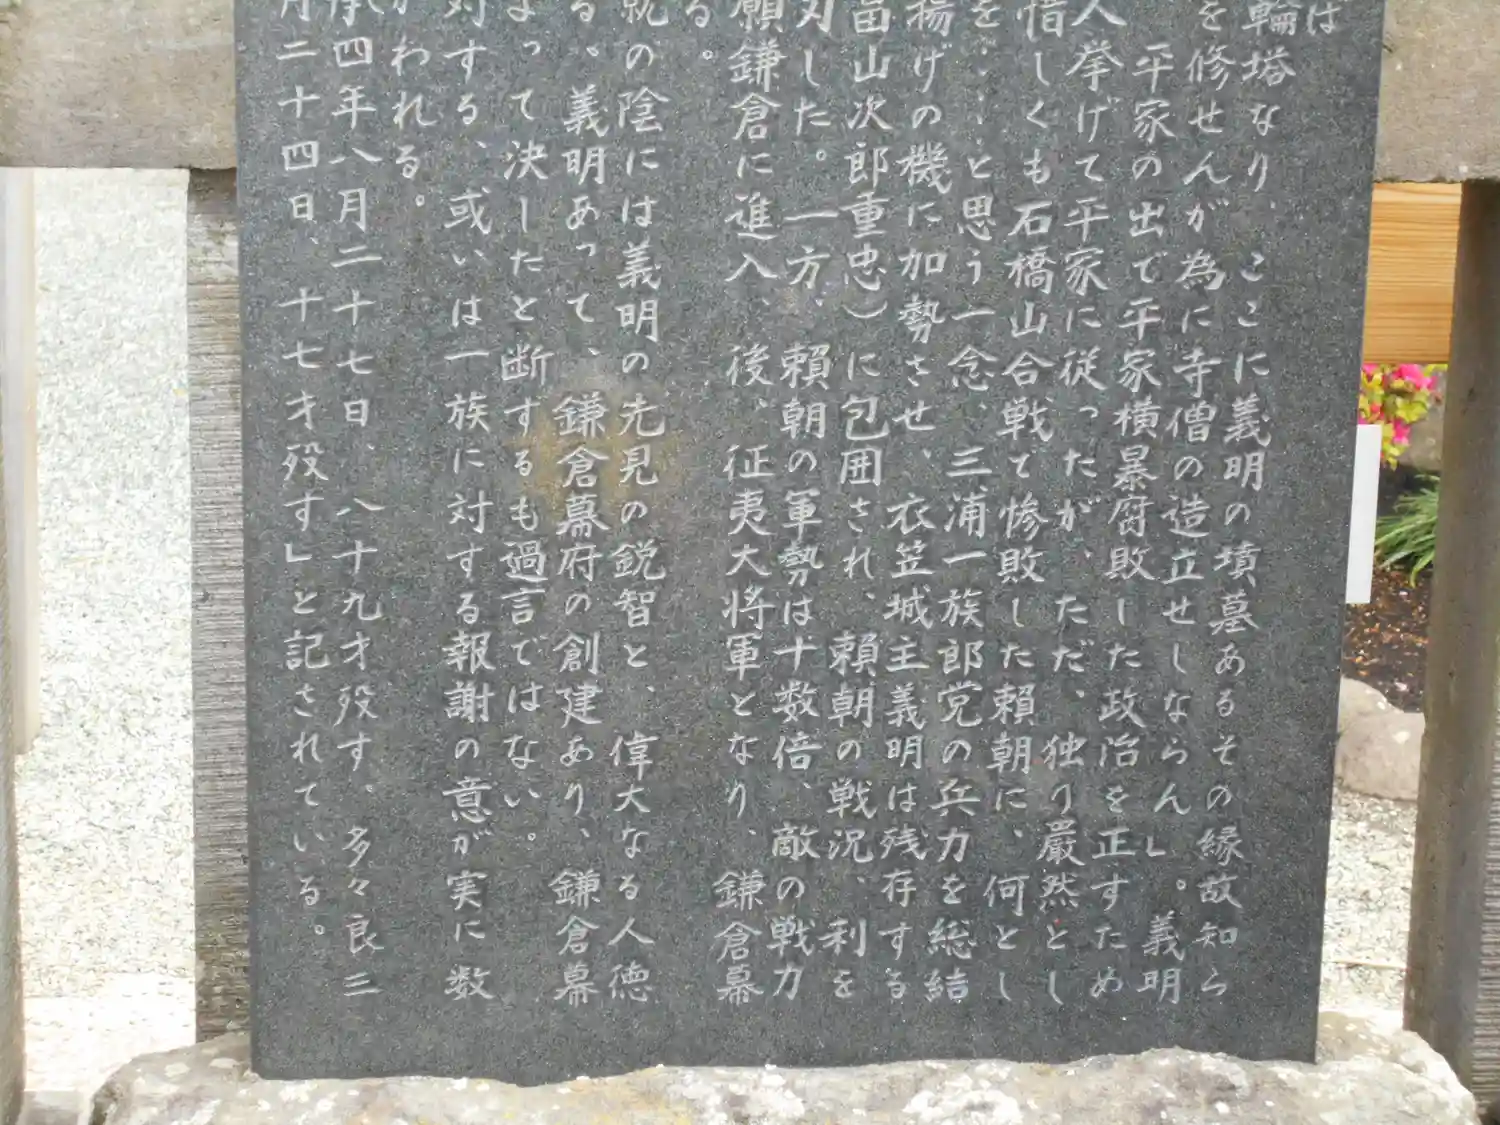 ば
輪塔なり、ここに義明の墳墓あるその縁故知ら
を修せんが為に寺僧の造立せしならん」。義明
平家の出で平家横暴腐敗した政治を正すため
人挙げて平家に従ったが、ただ、独り厳然とし
惜しくも石橋山合戦で惨敗した賴朝に、何とし
を・・・と思う一念、三浦一族郎党の兵力を総結
揚げの機に加勢させ、衣笠城主義明は残存する
畠山次郎重忠)に包囲され、賴朝の戦況、利を
刃した。一方、賴朝の軍勢は十数倍、敵の戦力
願鎌倉に進入、後、征夷大将軍となり、鎌倉幕
る。
就の陰には義明の先見の鋭智と、偉大なる人徳
る。義明あって、鎌倉幕府の創建あり、鎌倉幕
よって決したと断するも過言ではない。
対する、或いは一族に対する報謝の意が実に数
がわれる。
四年八月二十七日、八十九才歿す。多々良三
月二十四日、十七才歿す」と記されている。